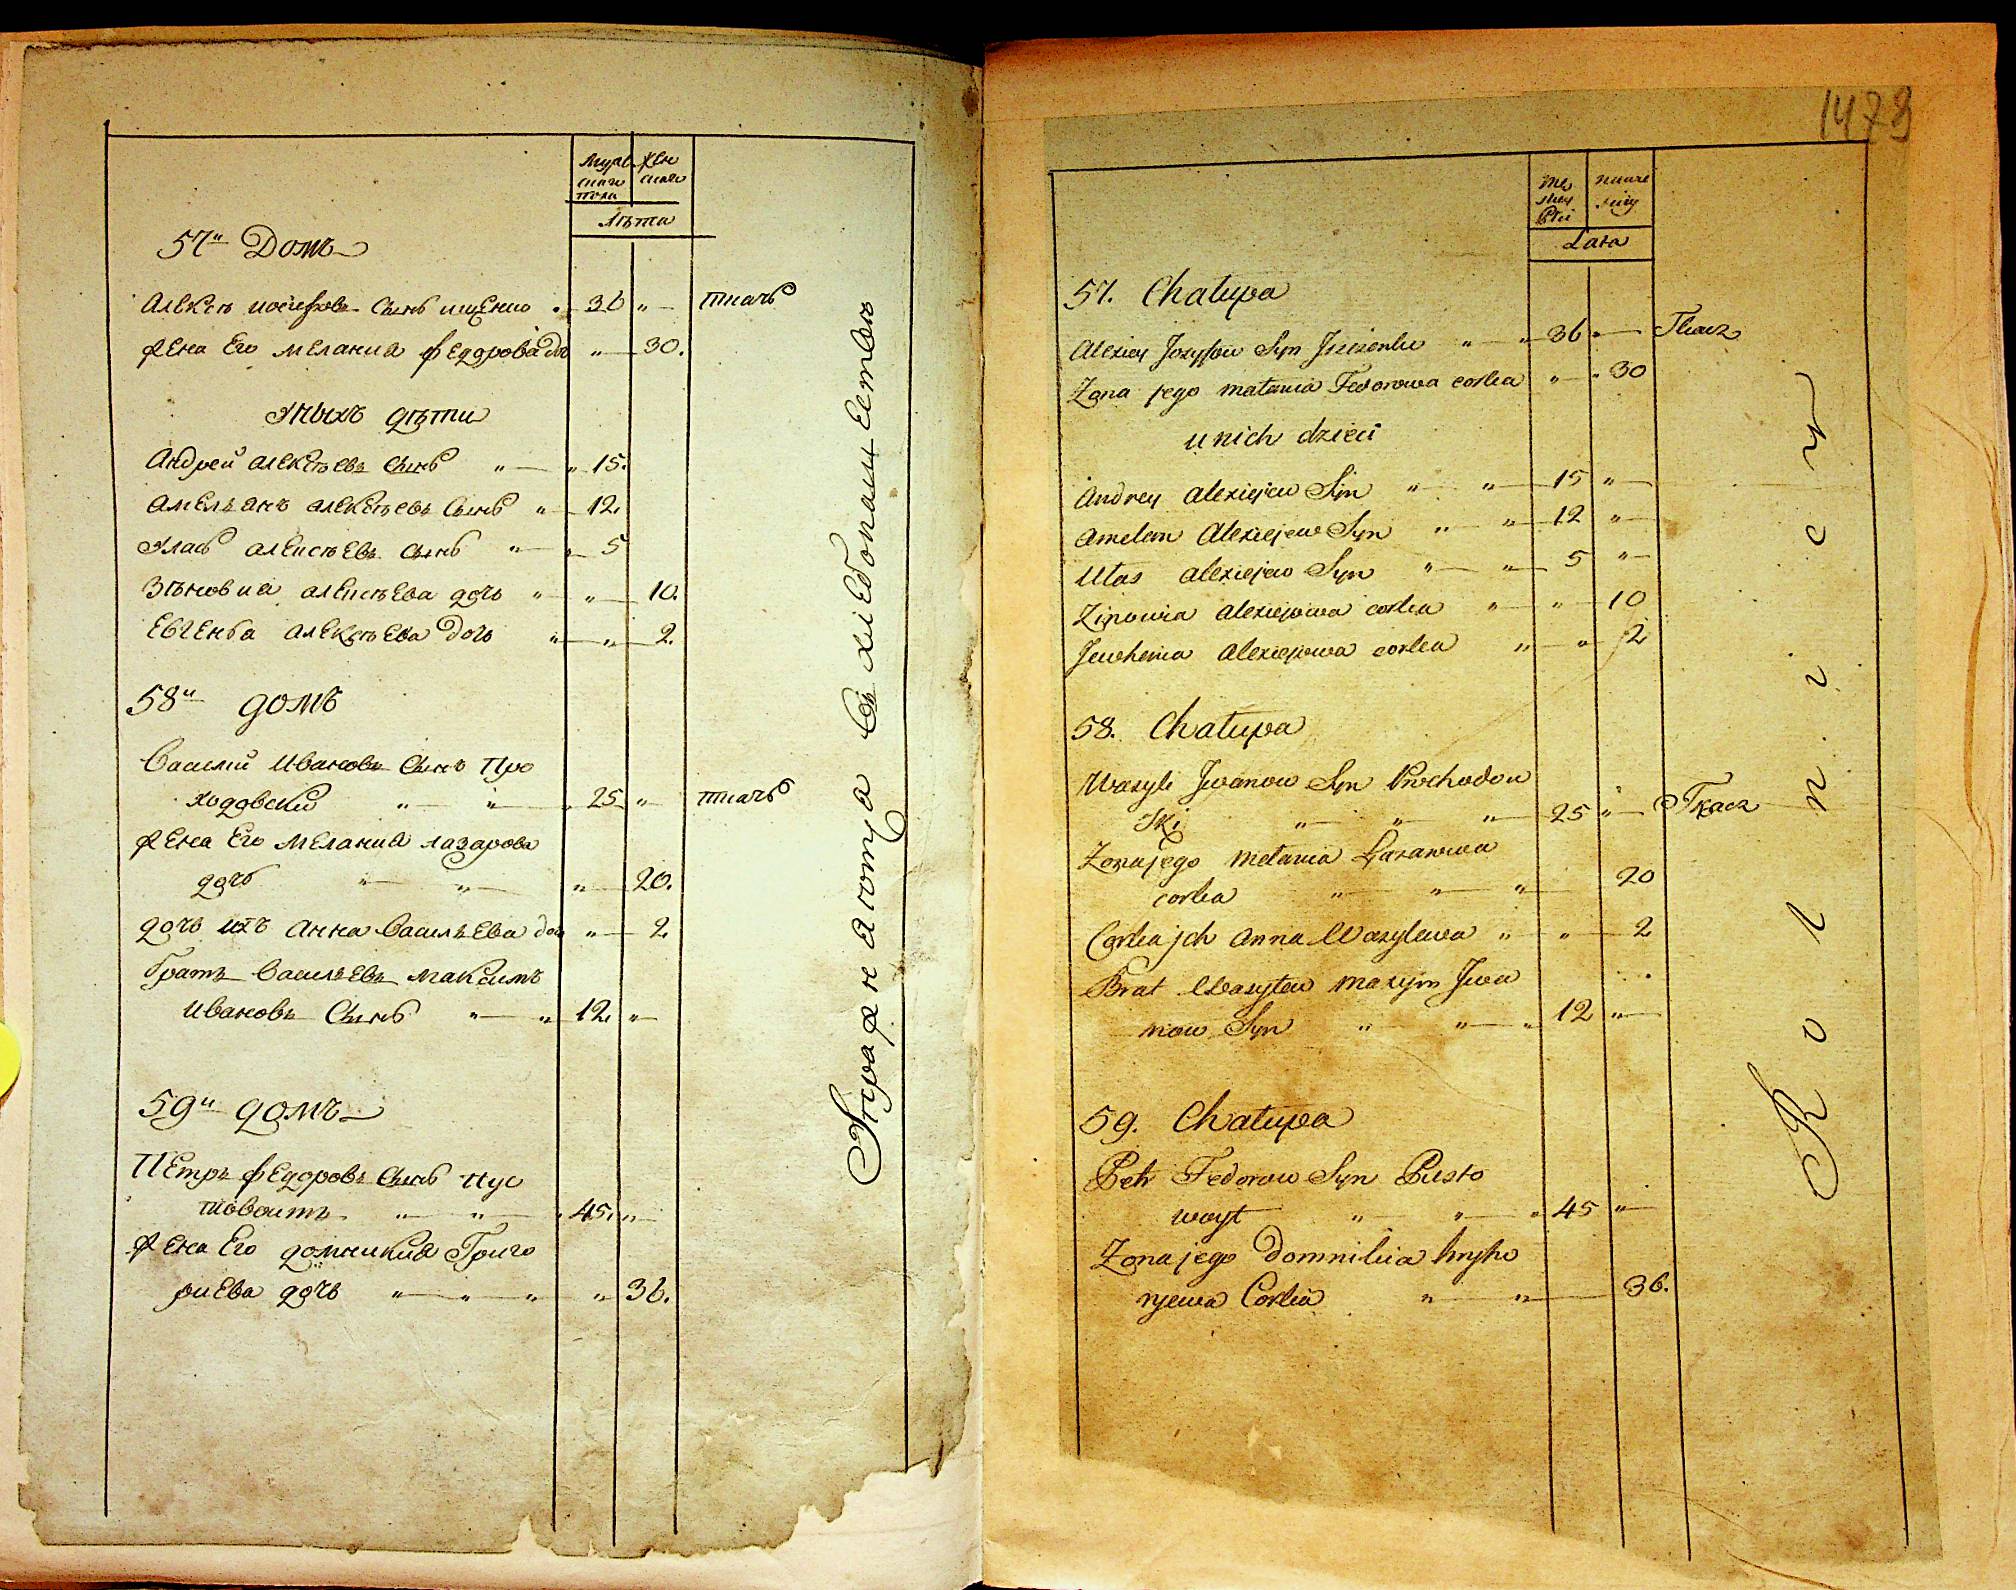 Муже Жен
скаго скаго
пола
Лѣта
57й Домъ
Алексѣ Іосифовъ Сынъ ищенко " 36 " ткачь
Жена Его Меланиа Федорова доч " 30.
У ныхъ дѣти
Андрей Алексѣевъ Сынъ " " 15.
Амельянъ Алексѣевъ Сынъ " 12.
Улас Алексѣевъ Сынъ " " 5
Зѣновиа Алексѣева дочь " " 10.
Евгенья Алексѣева дочь " " 2.
58й домъ
Василий Ивановъ Сынъ Про
ходовский " " " 25 " ткачь
Жена Его Меланиа Лазарова
дочь " " " 20.
дочь ихъ Анна Васильева доч " 2.
братъ Васильевъ Максимъ
Ивановъ Сынъ " " 12. "
59й домъ
Петръ Федоровъ Сынъ Пус
товоитъ " " " 45. "
Жена Его Домникиа Григо
риева дочь " " " " 36.
Упражняютца Въ хлебопашестве
1479
Lata
57. Chałupa
Alexiey Jozyfow Syn Jszczenko " " 36 " Tkacz
Zona jego Małania Fedorowa corka " " 30
u nich dzieci
Andrey Alexiejew Syn " " 15 "
Amelan Alexiejew Syn " " 12 "
Ułas Alexiejew Syn " " 5 "
Zinowia Alexiejewa corka " " 10
Jewhenia Alexiejewa corka " " 2
58. Chałupa
Wasyli Jwanow Syn Prochodow
ski " " " 25 " Tkacz
Zona jego Mełania Łazarowa
corka " " " 20
Corka jch Anna Wasylewa " " 2
Brat Wasylew Maxym Jwa
now Syn " " " 12 "
59. Chałupa
Petr Fedorow Syn Pusto
woyt " " " 45 "
Zona jego Domnikia Hryho
ryewa Corka " " 36.
Rolnicy